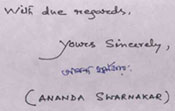 With due regards,
Yours Sincerely,
(ANANDA SWARNAKAR)